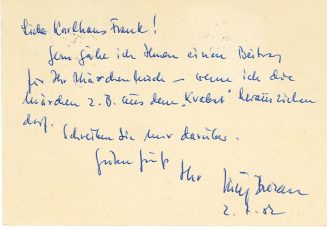 Lieber Karlhans Frank!
Gern gäbe ich Ihnen einen Beitrag
für Ihr Märchenbuch – wenn ich die
Märchen z. B. aus dem „Krebst" herausziehen
darf. Schreiben Sie mir darüber.
Guten Gruß
Ihr
2. 7. 82